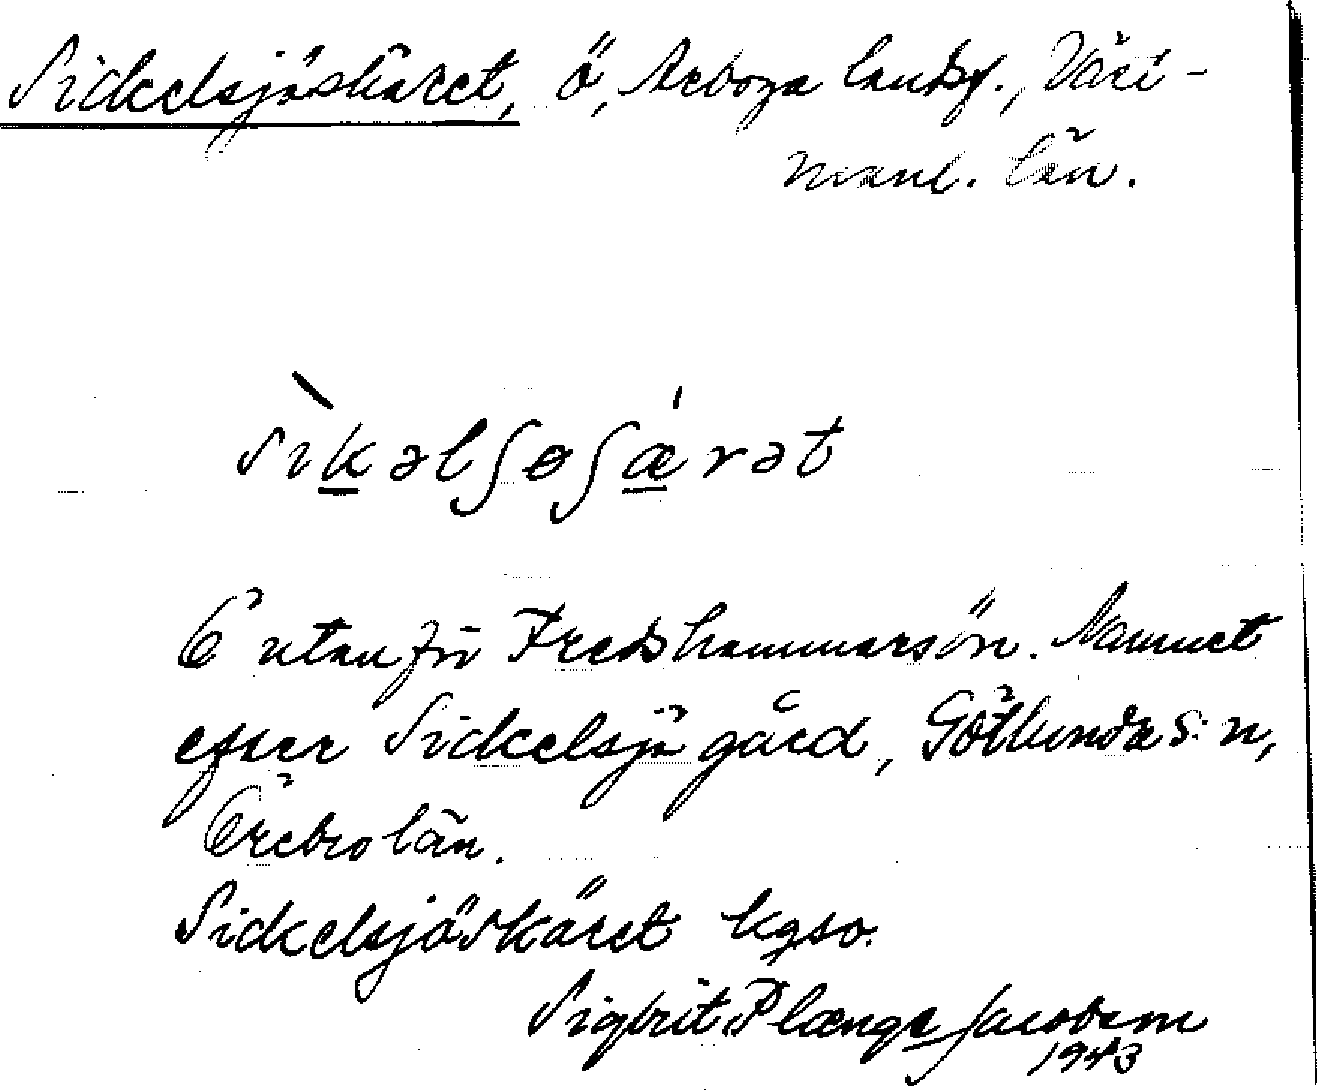 Sickelsjöskäret, ö, Arboga landsf., Väst-
manl. län.
sìkəlʃøʃǽrət
Ö utanför Fredshammarsön. Namnet
efter Sickelsjö gård, Götlunda s:n,
Örebro län.
Sickelsjöskäret kgso.
Sigbrit Plænge Jacobson
1943